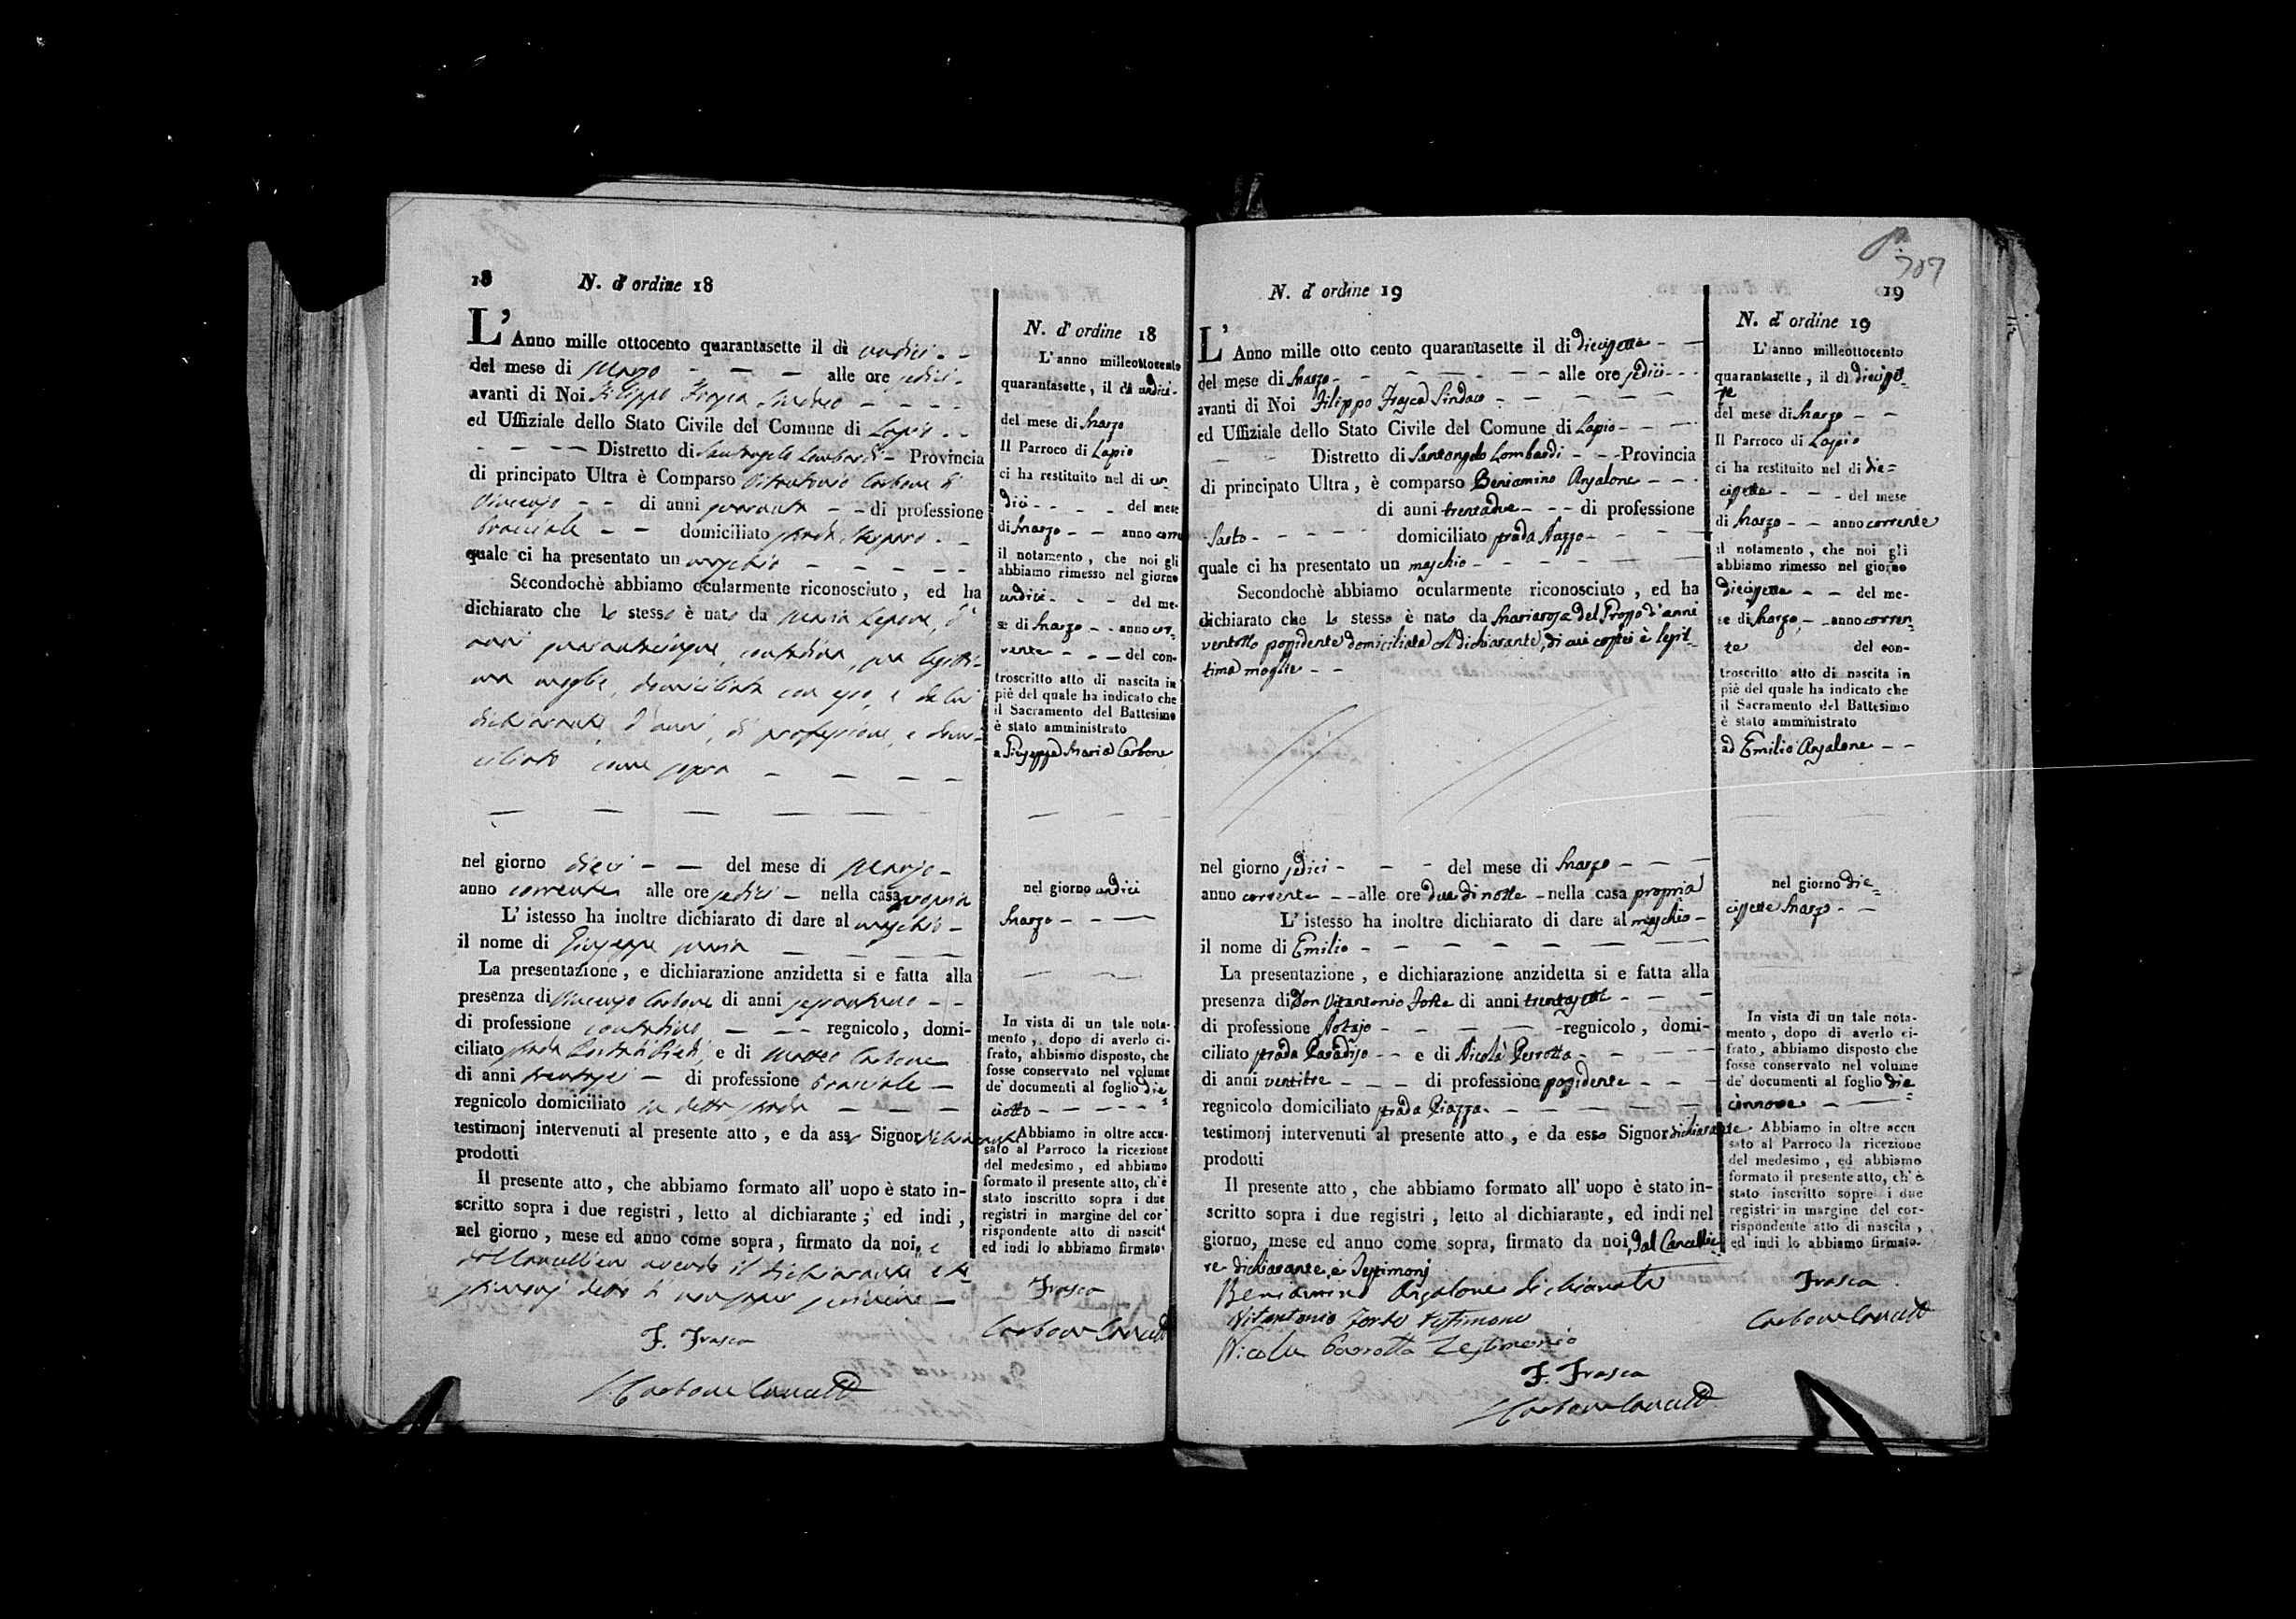 18 N. d' ordine 18
L' Anno mille ottocento quarantasette il dì undici
del mese di Marzo alle ore sedici
avanti di Noi Filippo Frasca Sindaco
ed Uffiziale dello Stato Civile del Comune di Lapio
Distretto di Santangelo Lombardi Provincia
di principato Ultra è Comparso Vitantonio Carbone di
Vincenzo di anni quaranta di professione
bracciale domiciliato strada
quale ci ha presentato un maschio
Secondochè abbiamo ocularmente riconosciuto, ed ha
dichiarato che lo stesso è nato da Maria Lepore, d'
anni quarantacinque, contadina, sua legitti-
ma moglie, domiciliata con esso, e da lui
dichiarante, d'anni, di professione, e domi-
ciliato come sopra
nel giorno dieci del mese di Marzo
anno corrente alle ore sedici nella casa propria
L' istesso ha inoltre dichiarato di dare al maschio
il nome di Giuseppe Maria
La presentazione, e dichiarazione anzidetta si e fatta alla
presenza di Vincenzo Carbone di anni
di professione contadino regnicolo, domi-
ciliato strada e di Matteo Carbone
di anni trentasei di professione bracciale
regnicolo domiciliato in detta strada
testimonj intervenuti al presente atto, e da Signor dichiarante
prodotti
Il presente atto, che abbiamo formato all' uopo è stato in-
scritto sopra i due registri, letto al dichiarante; ed indi,
nel giorno, mese ed anno come sopra, firmato da noi, e
dal Cancelliere avendo il dichiarante e te-
stimonj detto di non saper scrivere
F. Frasca
Carbone Cancell.
N. d' ordine 18
L' anno milleottocento
quarantasette, il dì undici
del mese di Marzo
Il Parroco di Lapio
ci ha restituito nel dì un-
dici del mese
di Marzo anno corre
il notamento, che noi gli
abbiamo rimesso nel giorno
undici del me-
se di Marzo anno cor-
rente del con-
troscritto atto di nascita in
piè del quale ha indicato che
il Sacramento del Battesimo
è stato amministrato
a Giuseppe Maria Carbone
nel giorno undici
Marzo
In vista di un tale nota-
mento, dopo di averlo ci-
frato, abbiamo disposto, che
fosse conservato nel volume
de' documenti al foglio die=
ciotto
Abbiamo in oltre accu-
sato al Parroco la ricezione
del medesimo, ed abbiamo
formato il presente atto, ch'è
stato inscritto sopra i due
registri in margine del cor
rispondente atto di nascit
ed indi lo abbiamo firmato
Frasca
Carbone Cancell.
707
N. d' ordine 19 19
L' Anno mille otto cento quarantasette il dì diecisette
del mese di Marzo alle ore sedici
avanti di Noi Filippo Frasca Sindaco
ed Uffiziale dello Stato Civile del Comune di Lapio
Distretto di Santangelo Lombardi Provincia
di principato Ultra, è comparso Beniamino Anzalone
di anni trentadue di professione
Sarto domiciliato strada
quale ci ha presentato un maschio
Secondochè abbiamo ocularmente riconosciuto, ed ha
dichiarato che lo stesso è nato da Mariarosa del Grosso d'anni
ventotto possidente domiciliata col dichiarante, di cui costei è legit-
tima moglie
nel giorno sedici del mese di Marzo
anno corrente alle ore due di notte nella casa propria
L' istesso ha inoltre dichiarato di dare al maschio
il nome di Emilio
La presentazione, e dichiarazione anzidetta si e fatta alla
presenza di Don Vitantonio Forte di anni trentasette
di professione Notajo regnicolo, domi-
ciliato strada Paradiso e di Nicola Perrotta
di anni ventitre di professione possidente
regnicolo domiciliato strada Piazza
testimonj intervenuti al presente atto, e da esso Signor dichiarante
prodotti
Il presente atto, che abbiamo formato all' uopo è stato in-
scritto sopra i due registri, letto al dichiarante, ed indi nel
giorno, mese ed anno come sopra, firmato da noi, dal Cancellie
re dichiarante, e Testimonj
Beniamino Anzalone dichiarante
Vitantonio Forte testimone
Nicola Perrotta Testimonio
F. Frasca
Carbone Cancell.
N. d' ordine 19
L' anno milleottocento
quarantasette, il dì dieciset-
te
del mese di Marzo
Il Parroco di Lapio
ci ha restituito nel dì die=
cisette del mese
di Marzo anno corrente
il notamento, che noi gli
abbiamo rimesso nel giorno
diecisette del me-
se di Marzo anno corren-
te del con-
troscritto atto di nascita in
piè del quale ha indicato che
il Sacramento del Battesimo
è stato amministrato
ad Emilio Anzalone
nel giorno die=
cisette Marzo
In vista di un tale nota-
mento, dopo di averlo ci-
frato, abbiamo disposto che
fosse conservato nel volume
de' documenti al foglio die=
cinnove
Abbiamo in oltre accu
sato al Parroco la ricezione
del medesimo, ed abbiamo
formato il presente atto, ch' è
stato inscritto sopre i due
registri in margine del cor-
rispondente atto di nascita,
ed indi lo abbiamo firmato.
Frasca
Carbone Cancell.